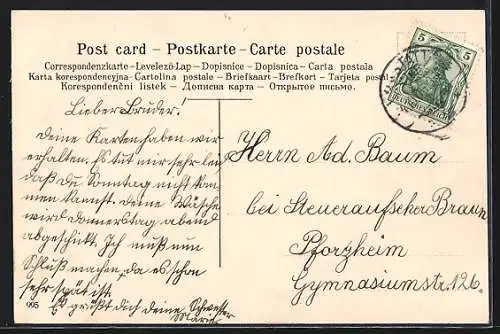 Post card – Postkarte – Carte postale
Correspondenzkarte – Levelező-Lap – Dopisnice – Dopisnica – Carta postala
Karta korespondencyjna – Cartolina postale – Briefkaart – Brefkort – Tarjeta postal
Korespondenční lístek – Дописна карта – Открытое письмо.
5 5
DEUTSCHES REICH
Lieber Bruder!
Deine Karten haben wir
erhalten. Es tut mir sehr leid
daß du Sonntag nicht kom
men kannst. Deine Wäsche
wird Donnerstag abend
abgeschickt. Ich muß nun
Schluß machen, da es schon
sehr spät ist.
Es grüßt dich deine Schwester
Marie
Herrn Ad. Baum
bei Steueraufseher Braun
Pforzheim
Gymnasiumstr. 126.
995